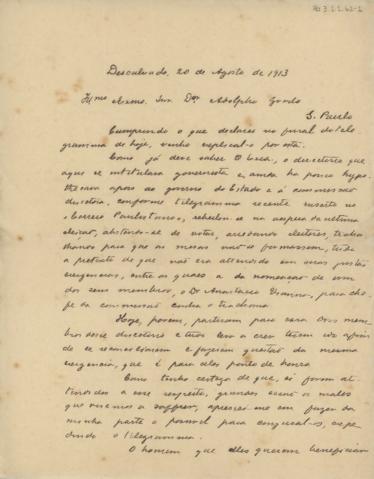 Descalvado, 20 de Agosto de 1913
Illmo Exmo. Snr. Dor Adolpho Gordo
S. Paulo
Cumprindo o que declarei no final do tele-
gramma de hoje, venho explical-o por esta.
Como já deve saber V. Excia, o directorio que
aqui se intitulava governista e ainda ha pouco hypo-
thecava apoio ao governo do Estado e á commissão
directora, conforme telegramma recente inserto no
"Correio Paulistano", rebellou-se na vespera da ultima
eleição, abstendo-se de votar,
para que as mesas não se formassem, tudo
a pretexto de que não era attendido em suas justas
exigencias, entre as quaes a da nomeação de um
dos seus membros, o Dr Anastacio Vianna, para che-
fe da commissão contra o trachoma.
Hoje, porem, partiram para essa dois mem-
bros desse directorio e tudo leva a crer terem ido afim
de se reconciliarem e fazerem questão da mesma
exigencia, que é para elles ponto de honra.
Como tenho certeza de que, si forem at-
tendidos a esse respeito, grandes serão os males
que viremos a soffrer, apressei-me em fazer da
minha parte o possivel para conjural-os, expe-
dindo o telegramma.
O homem que elles querem beneficiar